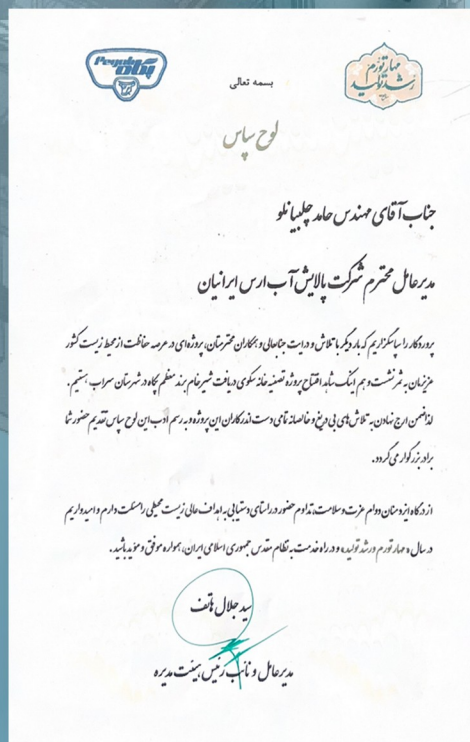 Pegah
پگاه
مهار تورم
رشد تولید
بسمه تعالی
لوح سپاس
جناب آقای مهندس حامد چلبیانلو
مدیرعامل محترم شرکت پالایش آب ارس ایرانیان
پروردگار را سپاسگزاریم که بار دیگر با تلاش و درایت جنابعالی و همکاران محترمتان، پروژه‌ای در عرصه حفاظت از محیط زیست کشور
عزیزمان به ثمر نشست و هم اینک شاهد افتتاح پروژه تصفیه خانه سکوی دریافت شیرخام برند معظم پگاه در شهرستان سراب هستیم.
لذا ضمن ارج نهادن به تلاش های بی دریغ و خالصانه تمامی دست اندرکاران این پروژه و به رسم ادب این لوح سپاس تقدیم حضور شما
برادر بزرگوار می گردد.
از درگاه ایزد منان دوام عزت و سلامت، تداوم حضور در راستای دستیابی به اهداف عالی زیست محیطی را مسئلت دارم و امیدواریم
در سال «مهار تورم و رشد تولید» و در راه خدمت به نظام مقدس جمهوری اسلامی ایران، همواره موفق و مؤید باشید.
سید جلال هاتف
مدیرعامل و نائب رئیس هیئت مدیره